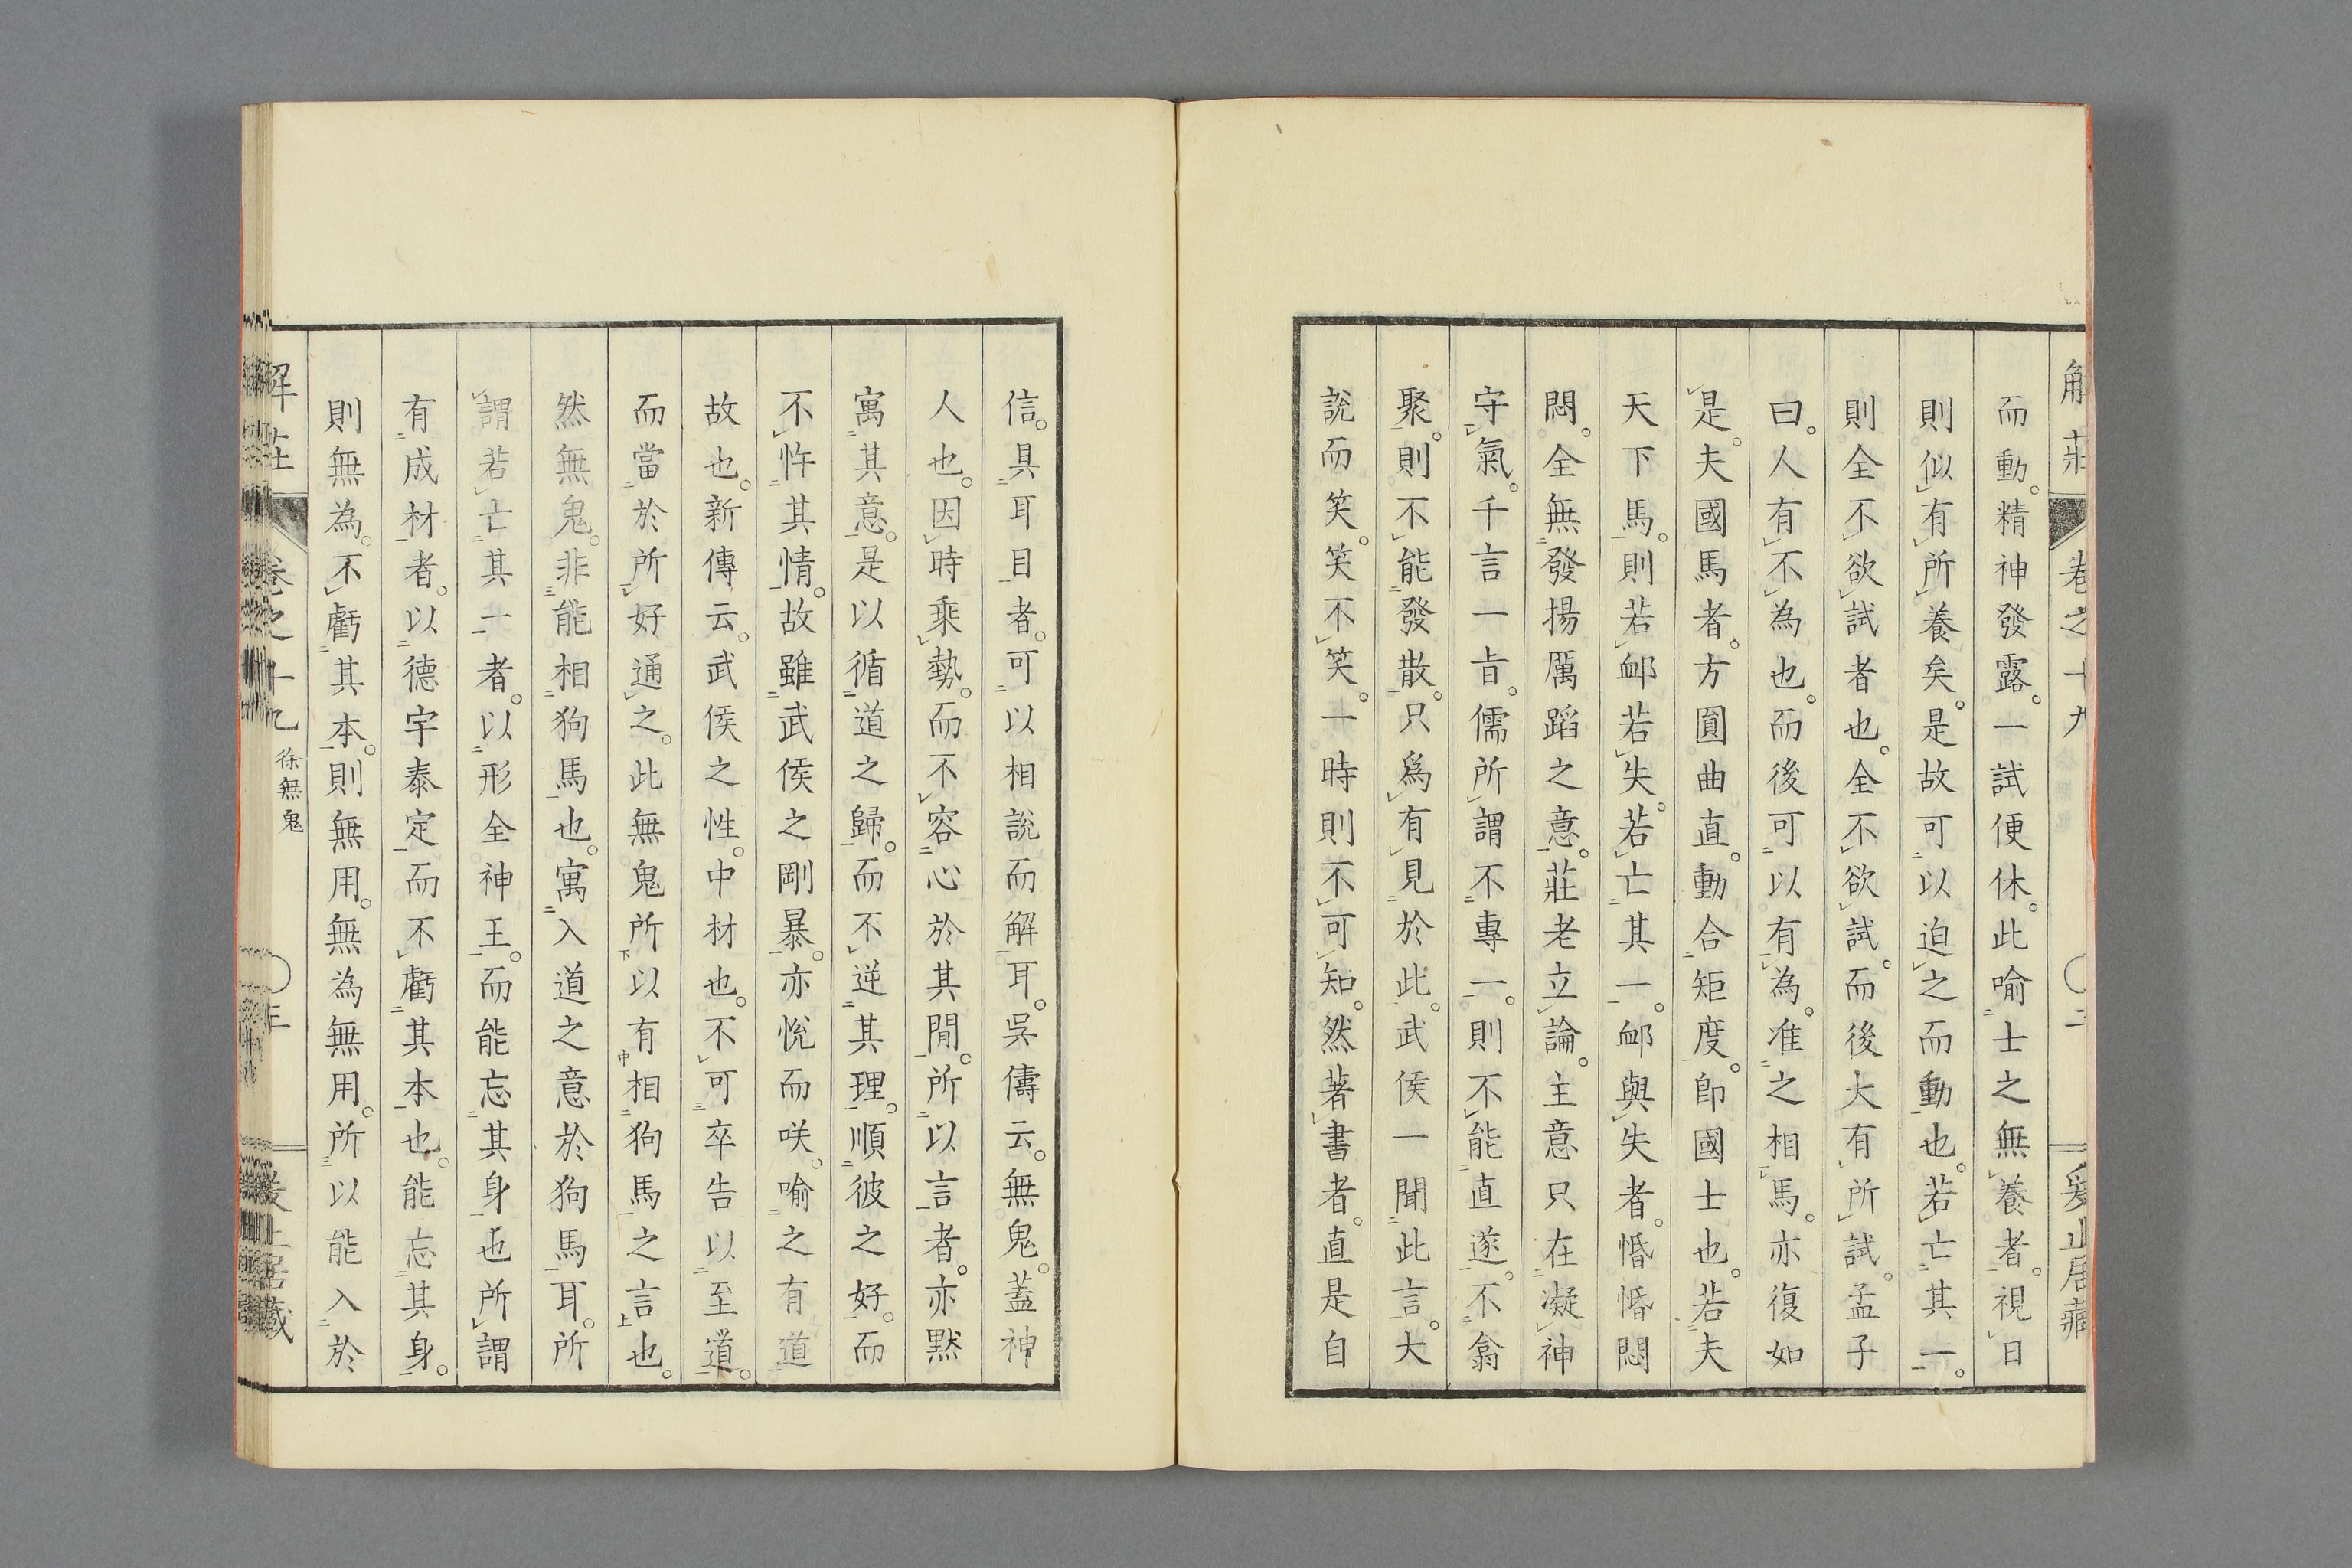 解莊 卷之十九 〇二 爰止居藏
而動。精神發露。一試便休。此喻士之無養者。視日
則似有所養矣。是故可以迫之而動也。若亡其一。
則全不欲試者也。全不欲試。而後大有所試。孟子
曰。人有不為也。而後可以有為。准之相馬。亦復如
是。夫國馬者。方圓曲直。動合矩度。卽國士也。若夫
天下馬。則若䘏若失。若亡其一。䘏與失者。惛惛悶
悶。全無發揚厲蹈之意。莊老立論。主意只在凝神
守氣。千言一旨。儒所謂不專一。則不能直遂。不翕
聚。則不能發散。只爲有見於此。武侯一聞此言。大
說而笑。笑不笑。一時則不可知。然著書者。直是自
信。具耳目者。可以相說而解耳。吳儔云。無鬼。蓋神
人也。因時乘勢。而不容心於其閒。所以言者。亦默
寓其意。是以循道之歸。而不逆其理。順彼之好。而
不忤其情。故雖武侯之剛暴。亦悅而咲。喻之有道
故也。新傳云。武侯之性。中材也。不可卒告以至道。
而當於所好通之。此無鬼所以有相狗馬之言也。
然無鬼。非能相狗馬也。寓入道之意於狗馬耳。所
謂若亡其一者。以形全神王。而能忘其身也所謂
有成材者。以德宇泰定而不虧其本也。能忘其身。
則無為。不虧其本。則無用。無為無用。所以能入於
解莊 卷之十九 徐無鬼 〇三 爰止居藏